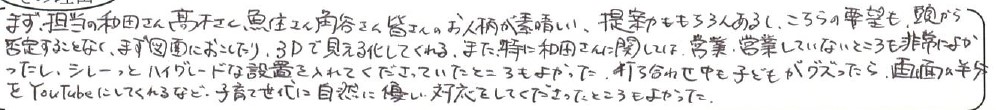 まず、担当の和田さん、高木さん、魚住さん、角谷さん皆さんのお人柄が素晴しい、提案力ももちろんあるし、こちらの要望も、頭から
否定することなく、まず図面におこしたり、3Dで見える化してくれる、また、特に和田さんに関しては、営業、営業していないところも非常によか
ったし、シレーっとハイグレードな設置を入れてくださっていたところもよかった。打ち合わせ中も子どもがグズったら、画面の半分
をYouTubeにしてくれるなど、子育て世代に自然に優しい対応をしてくださったところもよかった。